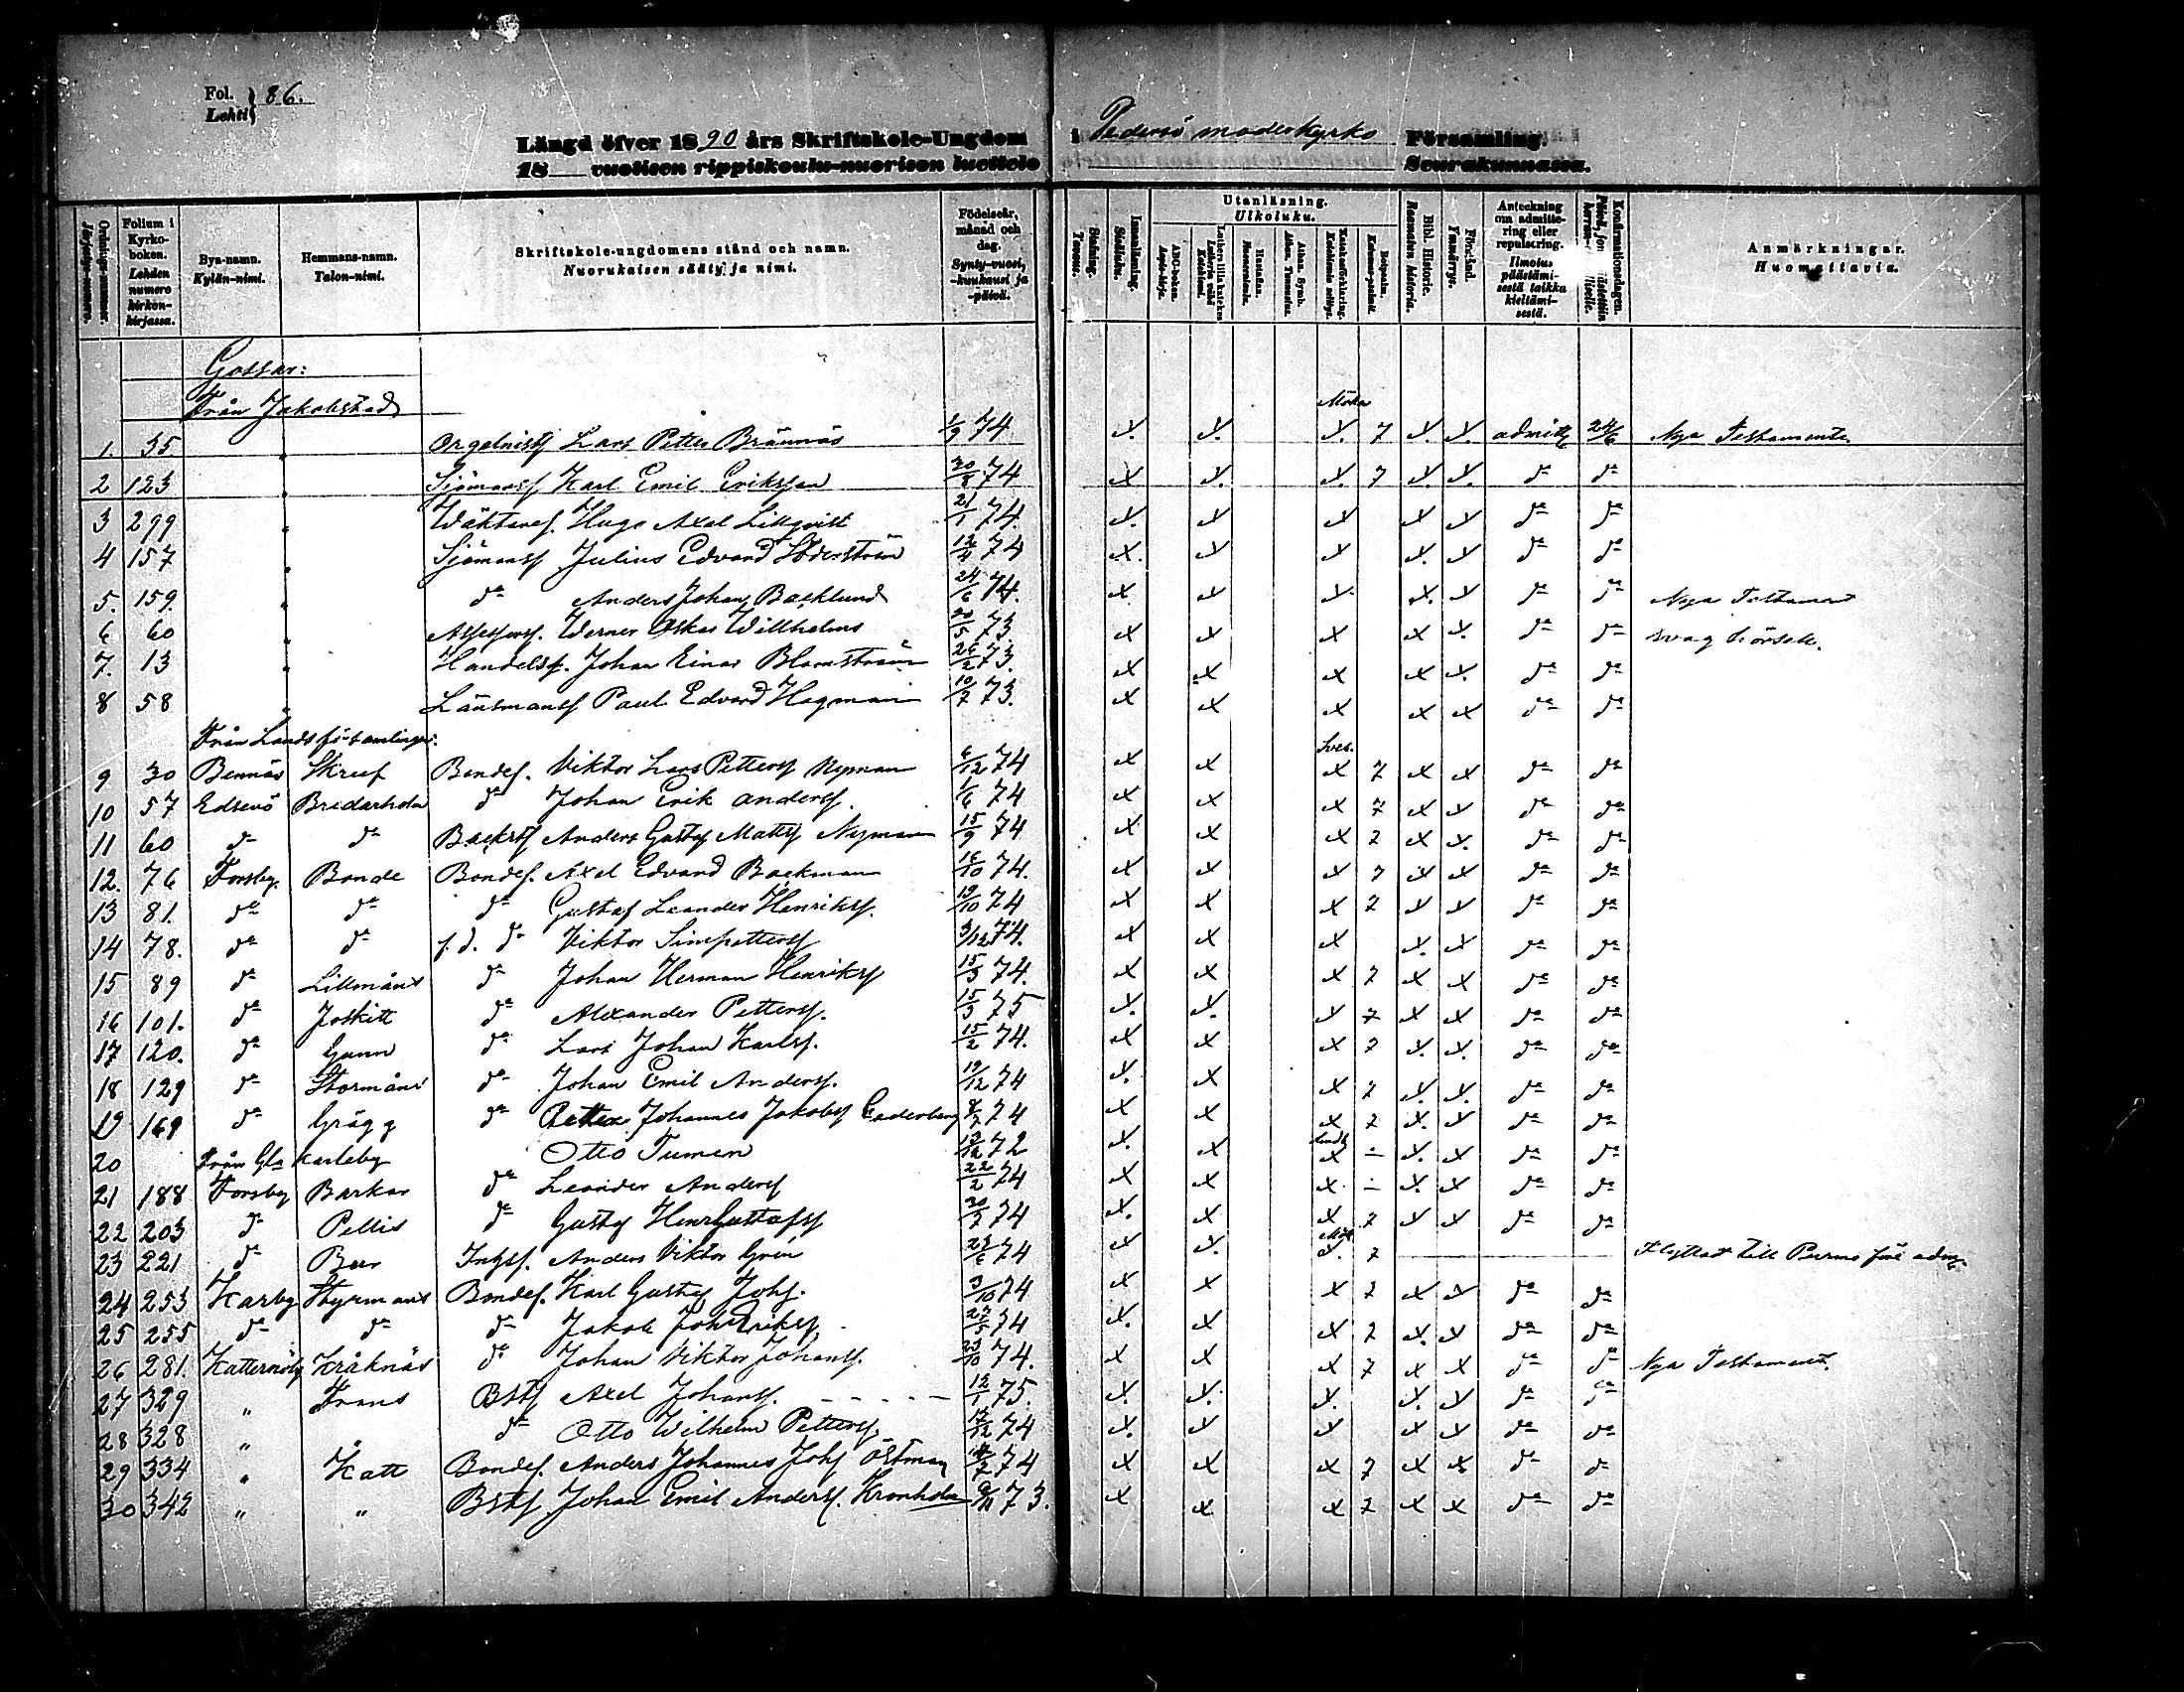 Fol. 86.
Lehti
Längd öfver 1890 års Skriftskole-Ungdom i Pedersö moderkyrko Församling.
18 vuotisen rippikoulu-nuorison luettelo Seurakunnassa.
Ordnings-nummer. Järjestys-numero.
Folium i Kyrko-boken. Lehden numero kirkon-kirjassa.
Bya-namn. Kylän-nimi.
Hemmans-namn. Talon-nimi.
Skriftskole-ungdomens stånd och namn. Nuorukaisen sääty ja nimi.
Födelseår, månad och dag. Synty-vuosi, -kuukausi ja -päivä.
Stafning. Tavaus.
Innanläsning. Sisäluku.
Utanläsning. Ulkoluku.
ABC-boken. Aapis-kirja.
Luthers lilla katekes Lutherin vähä Katekismi.
Hustaflan. Huoneentaulu.
Athan. Symb. Athan. Tunnustus.
Kateketförklaring. Katekismin selitys.
Botpsalm. Katumus-psalmit.
Bibl. Historie. Raamatun Historia.
Förstånd. Ymmärrys.
Anteckning om admittering eller repulsering. Ilmotus päästämisestä taikka kieltämisestä.
Konfirmationsdagen.
Anmärkningar. Huomattavia.
Gossar:
Från Jakobstad
1. 35 Orgelnistf Lars Petter Brännäs 1/9 74 7 admitt 24/6 Nya Testamente
2 123 Sjömansf Karl Emil Eriksson 20/8 74 7 do do
3 299 Wäktaref. Hugo Axel Lillqvist 21/1 74. do do
4 157 Sjömansf Julius Edvard Söderström 12/4 74 do do
5. 159. do Anders Johan Backlund 24/6 74. do do Nya Testament
6 60 Assessorsf. Werner Oskar Willhelms 20/5 73. do do svag hörsell.
7. 13 Handelsf. Johan Einar Blomström 26/2 73. do do
8 58 Länsmansf Paul Edvard Hagman 10/7 73. do do
Från Landsförsamlingen.
9 30 Bennäs Skruf Bondef. Viktor Lars Pettersf Nyman 6/12 74 7 do do
10 57 Edsevö Bredarholm do Johan Erik Andersf. 1/6 74 7 do do
11 60 do do Backstf Anders Gustaf Mattsf Nyman 15/9 74 7 do do
12. 76 Forsby. Bonde Bondef. Axel Edvard Backman 16/10 74. 7 do do
13 81. do do do Gustaf Leander Henriksf. 19/10 74 7 do do
14 78. do do f.d. do Viktor Simpettersf 3/12 74. do do
15 89 do Lillmåns do Johan Herman Henriksf 15/3 74. 7 do do
16 101. do Joskitt do Alexander Pettersf. 15/3 75 7 do do
17 120. do Gunn do Lars Johan Karlsf. 15/2 74. 7 do do
18 129 do Stormåns do Johan Emil Andersf. 19/12 74 7 do do
19 169 do Grägg do Petter Johannes Jakobsf Cederberg 8/7 74 7 do do
20 Från Gla Karleby Otto Tumen 72 do do
21 188 Forsby Barkar do Leander Andersf 22/2 74 do do
22 203 do Pellis do Gustaf Henr Gustafsf 20/7 74 7 do do
23 221 do Beer Inhysf. Anders Viktor Grén 74 7 Flyttat till Purmo före adm
24 253 Karby Styrmans Bondef. Karl Gustaf Johsf. 3/10 74 7 do do
25 255 do do do Jakob Joh Eriksf. 27/5 74 7 do do
26 281. Katternöby Kråknäs do Johan Viktor Johansf. 23/10 74. 7 do do Nya Testament.
27 329 " Frans Bstf Axel Johansf. 12/1 75. do do
28 328 " do Otto Wilhelm Pettersf. 17/12 74 do do
29 334 " Katt Bondef. Anders Johannes Johsf Östman 74 7 do do
30 342 " " Bstf Johan Emil Andersf. Kronholm 9/11 73. 7 do do